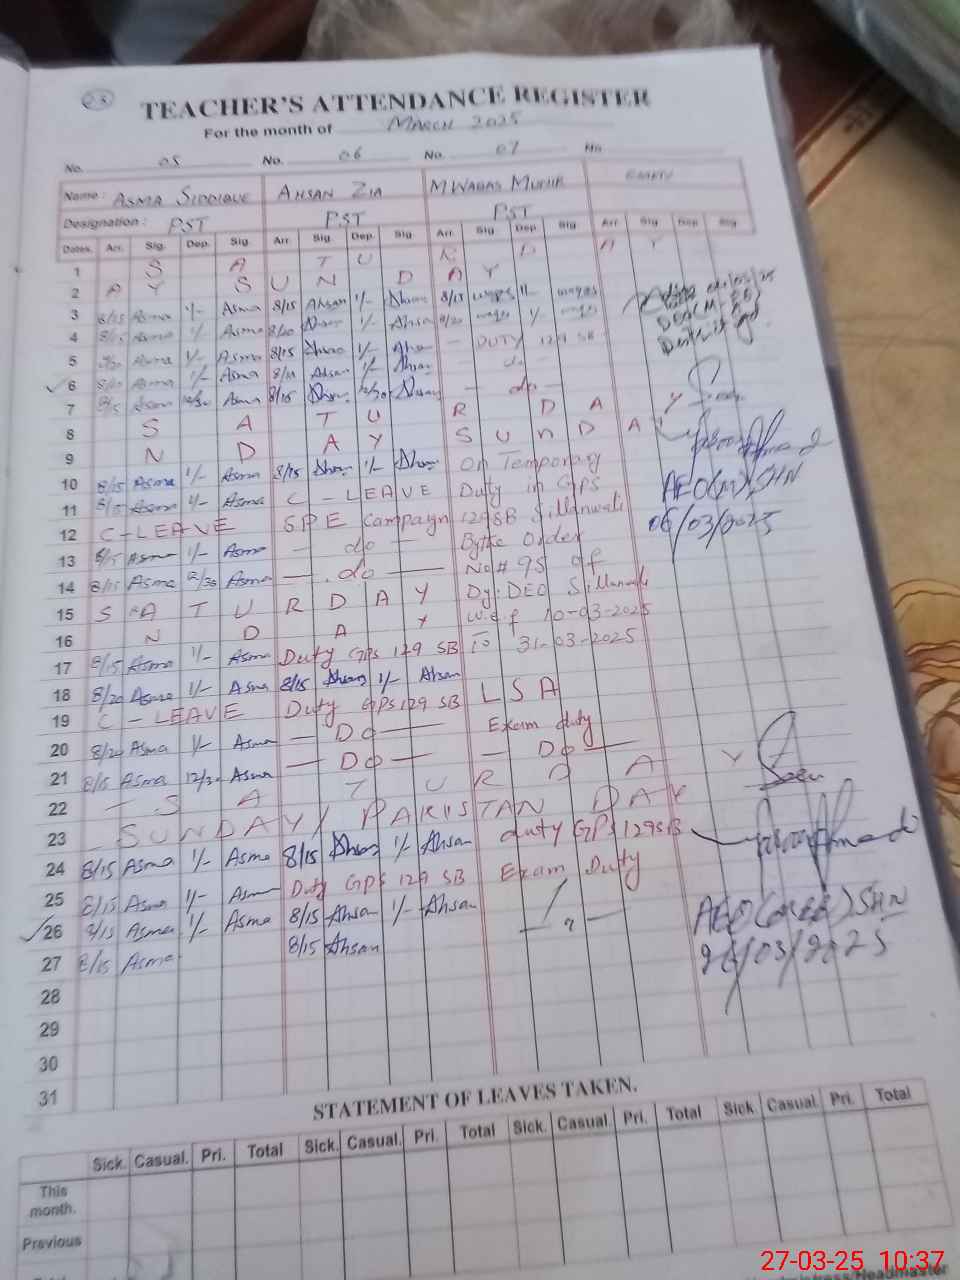 23
TEACHER'S ATTENDANCE REGISTER
For the month of MARCH 2025
No. 05 No. 06 No. 07 No.
Name: ASMA SIDDIQUE AHSAN ZIA M WAQAS MUNIR EMPTY
Designation: PST PST PST
Dates. Arr. Sig. Dep. Sig. Arr. Sig. Dep. Sig. Arr. Sig. Dep Sig. Arr. Sig. Dep Sig.
1 S A T U R D A Y
2 S U N D A Y
3 8/15 Asma 1/- Asma 8/15 Ahsan 1/- Ahsan 8/15 waqas 1/- waqas
4 8/15 Asma 1/- Asma 8/20 Ahsan 1/- Ahsan 8/20 waqas 1/- waqas
5 Asma 1/- Asma 8/15 Ahsan 1/- Ahsan - DUTY 129 SB
6 Asma 1/- Asma Ahsan 1/- Ahsan - do -
7 8/15 Asma 12/30 Asma 8/15 Ahsan 12/30 Ahsan - do -
8 S A T U R D A Y
9 S U N D A Y
10 8/15 Asma 1/- Asma 8/15 Ahsan 1/- Ahsan On Temporary
11 8/15 Asma 1/- Asma C - LEAVE Duty in GPS
12 C - LEAVE campaign 129SB Sillanwali
13 8/15 Asma 1/- Asma - do - Order
14 8/15 Asma 12/30 Asma - do - No # 95 of
15 S A T U R D A Y Dy: DEO Sillanwali
16 N D A Y w.e.f 10-03-2025
17 8/15 Asma 1/- Asma Duty GPS 129 SB To 31-03-2025
18 8/20 Asma 1/- Asma 8/15 Ahsan 1/- Ahsan
19 C - LEAVE Duty GPS 129 SB L S A
20 8/20 Asma 1/- Asma - Do - Exam duty
21 8/15 Asma 12/30 Asma - Do - - Do -
22 - S A T U R D A Y
23 SUNDAY / PAKISTAN DAY
24 8/15 Asma 1/- Asma 8/15 Ahsan 1/- Ahsan duty GPS 129SB
25 8/15 Asma 1/- Asma Duty GPS 129 SB Exam Duty
26 8/15 Asma 1/- Asma 8/15 Ahsan 1/- Ahsan - " -
27 8/15 Asma 8/15 Ahsan
28
29
30
31
AEO(M) SHN
06/03/2025
SHN
26/03/2025
STATEMENT OF LEAVES TAKEN.
Sick. Casual. Pri. Total Sick. Casual. Pri. Total Sick. Casual. Pri. Total Sick. Casual. Pri. Total
This
month.
Previous
Headmaster
27-03-25 10:37